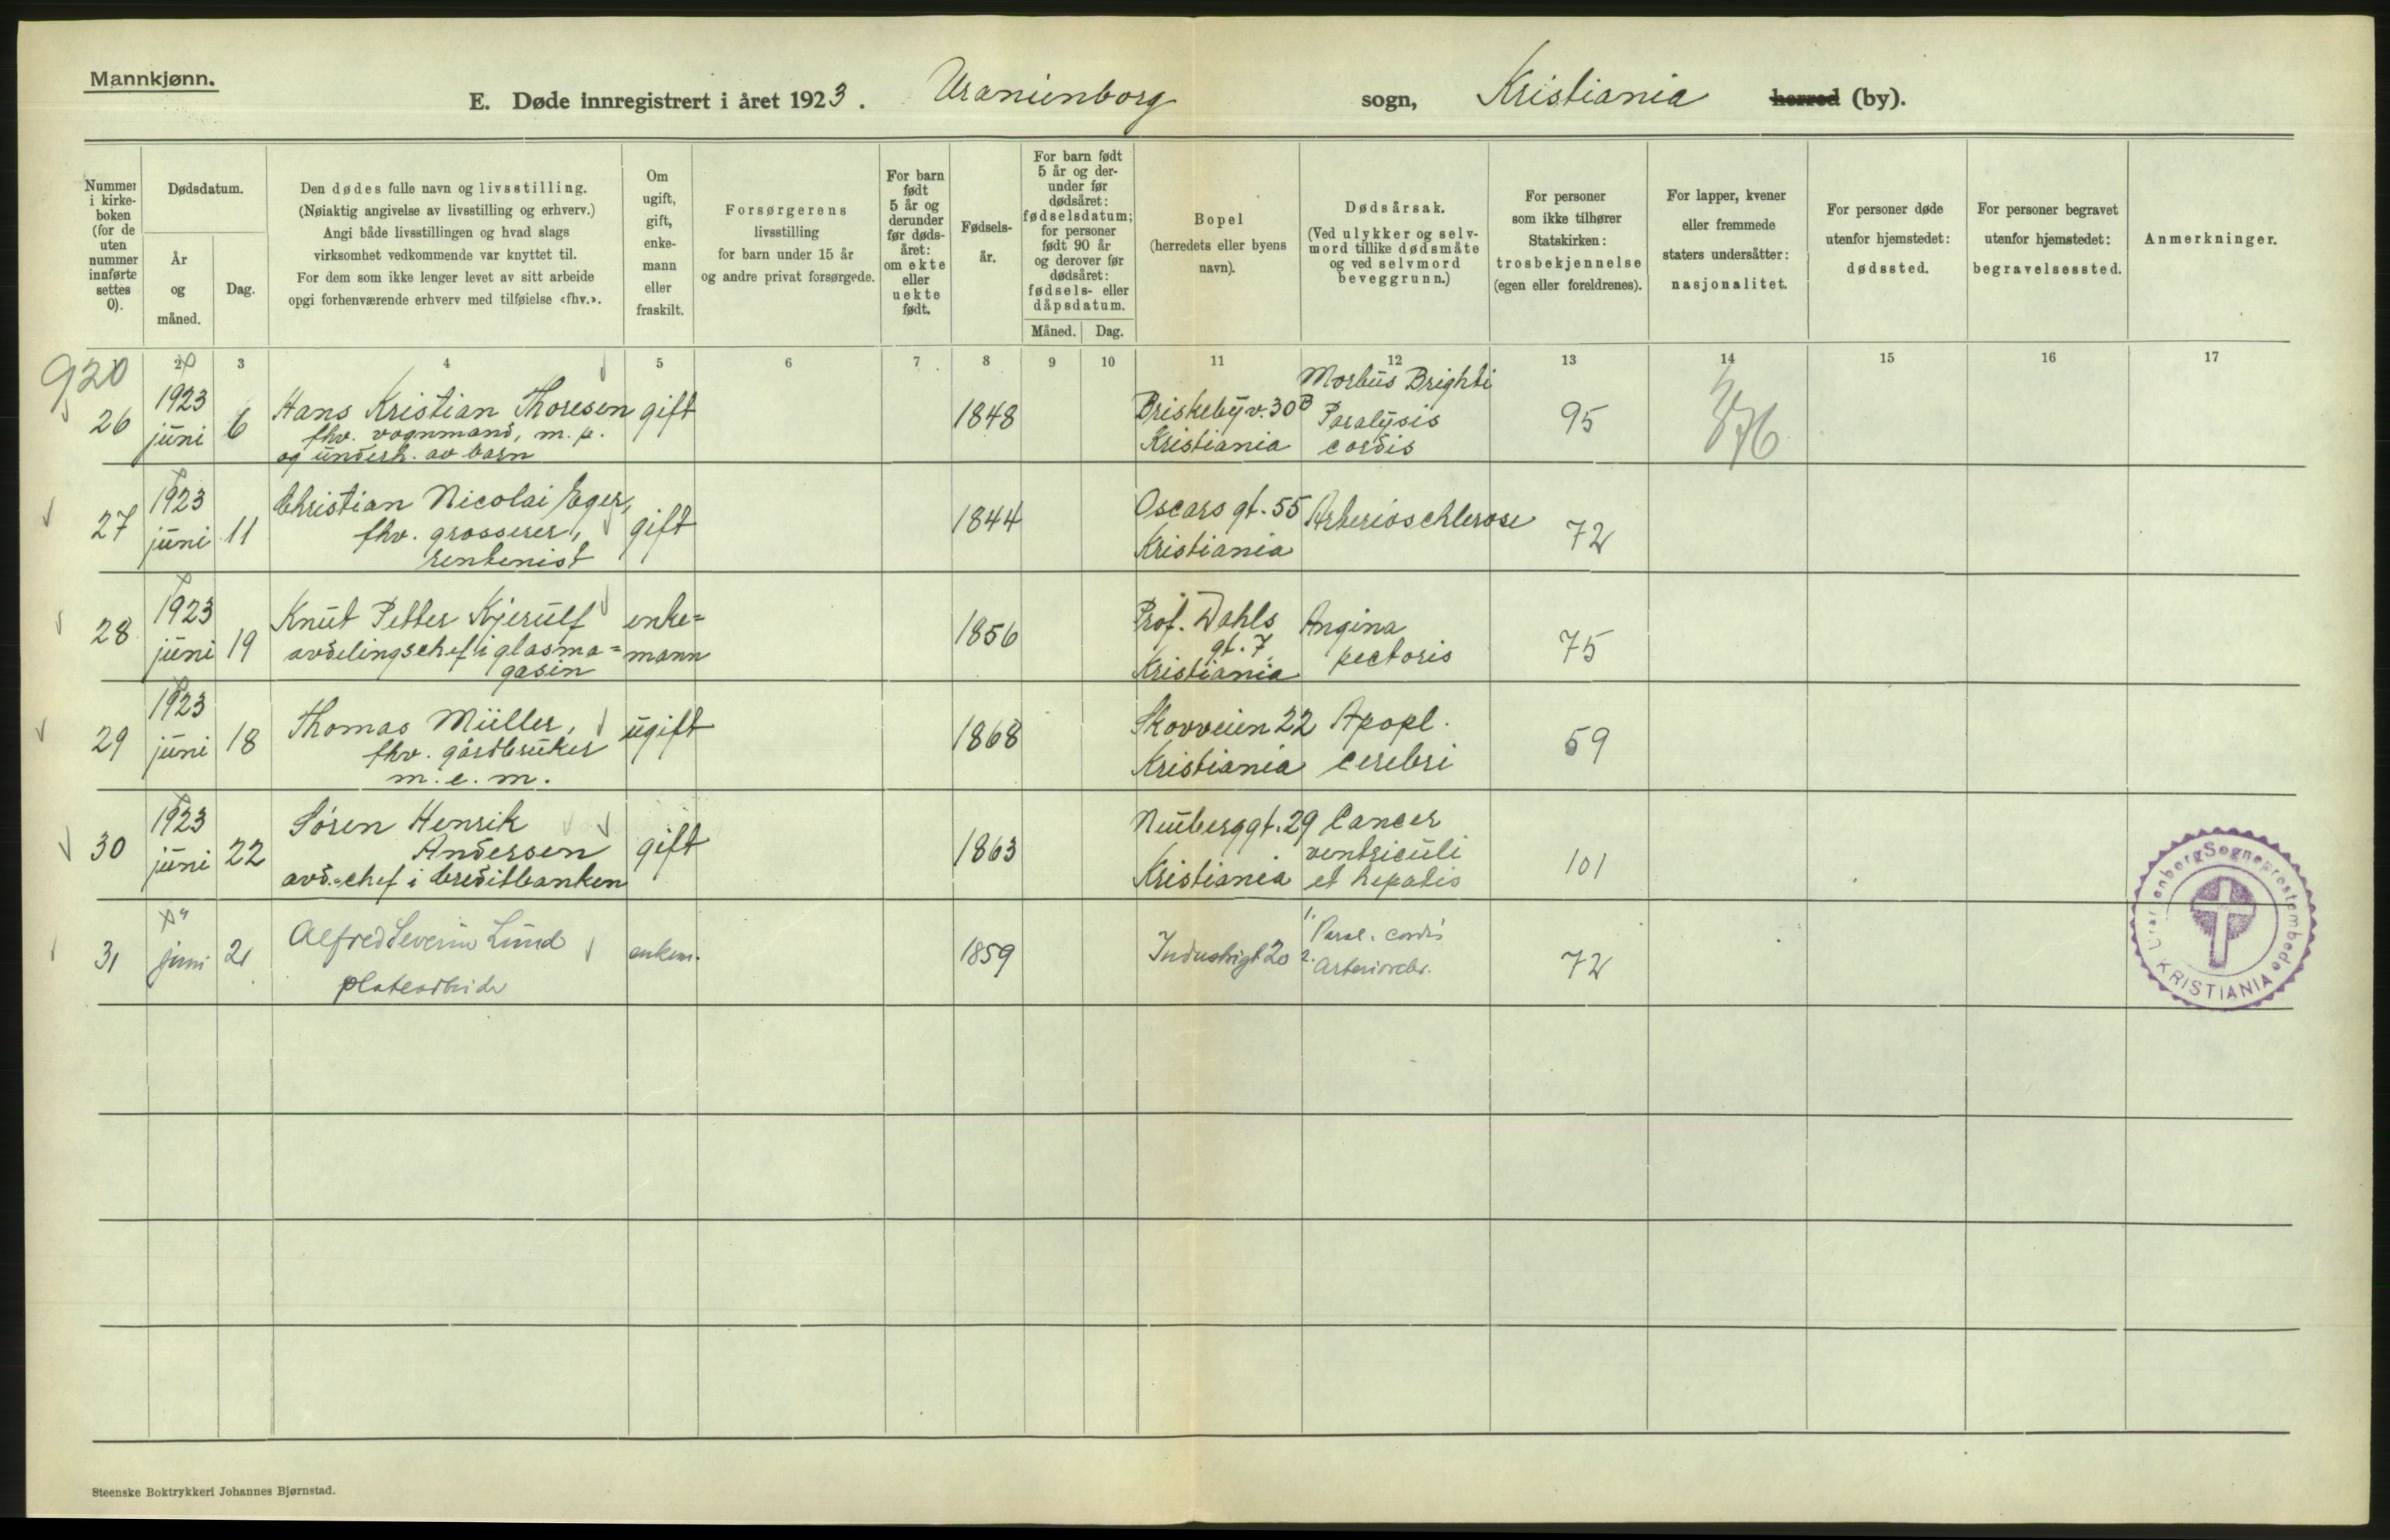 Mannkjønn.
E. Døde innregistrert i året 1923. Uranienborg sogn, Kristiania herred (by).
Nummer
i kirke-
boken
(for de
uten
nummer
innførte
settes
0).
Dødsdatum.
År
og
måned.
Dag.
Den dødes fulle navn og livsstilling.
(Nøiaktig angivelse av livsstilling og erhverv.)
Angi både livsstillingen og hvad slags
virksomhet vedkommende var knyttet til.
For dem som ikke lenger levet av sitt arbeide
opgi forhenværende erhverv med tilføielse «fhv.».
Om
ugift,
gift,
enke-
mann
eller
fraskilt.
Forsørgerens
livsstilling
for barn under 15 år
og andre privat forsørgede.
For barn
født
5 år og
derunder
før døds-
året:
om ekte
eller
uekte
født.
Fødsels-
år.
For barn født
5 år og der-
under før
dødsåret:
fødselsdatum;
for personer
født 90 år
og derover før
dødsåret:
fødsels- eller
dåpsdatum.
Måned. Dag.
Bopel
(herredets eller byens
navn).
Dødsårsak.
(Ved ulykker og selv-
mord tillike dødsmåte
og ved selvmord
beveggrunn.)
For personer
som ikke tilhører
Statskirken:
trosbekjennelse
(egen eller foreldrenes).
For lapper, kvener
eller fremmede
staters undersåtter:
nasjonalitet.
For personer døde
utenfor hjemstedet:
dødssted.
For personer begravet
utenfor hjemstedet:
begravelsessted.
Anmerkninger.
920 2 3 4 5 6 7 8 9 10 11 12 13 14 15 16 17
26 1923 juni 6 Hans Kristian Thoresen gift 1848 Briskebyv. 30B Morbus Brighti 95
fhv. vognmand, m. p. Kristiania Paralysis
og underh. av barn cordis
27 1923 juni 11 Christian Nicolai Eger, gift 1844 Oscars gt. 55 Arterioschlerose 72
fhv. grosserer, Kristiania
rentenist
28 1923 juni 19 Knut Petter Kjerulf enke= 1856 Prof. Dahls Angina 75
avdelingschef i glasma= mann gt. 7 pectoris
gasin Kristiania
29 1923 juni 18 Thomas Müller, ugift 1868 Skovveien 22 Apopl. 59
fhv. gårdbruker Kristiania cerebri
m. e. m.
30 1923 juni 22 Søren Henrik gift 1863 Neuberggt. 29 Cancer 101
Andersen Kristiania ventriculi
avd.=chef i Creditbanken et hepatis
31 juni 21 Alfred Severin Lund enkem. 1859 Industrigt 20 1. Paral. cordis 72
2. Arterioscler.
Uranienborg Sogneprestembede
KRISTIANIA
Steenske Boktrykkeri Johannes Bjørnstad.